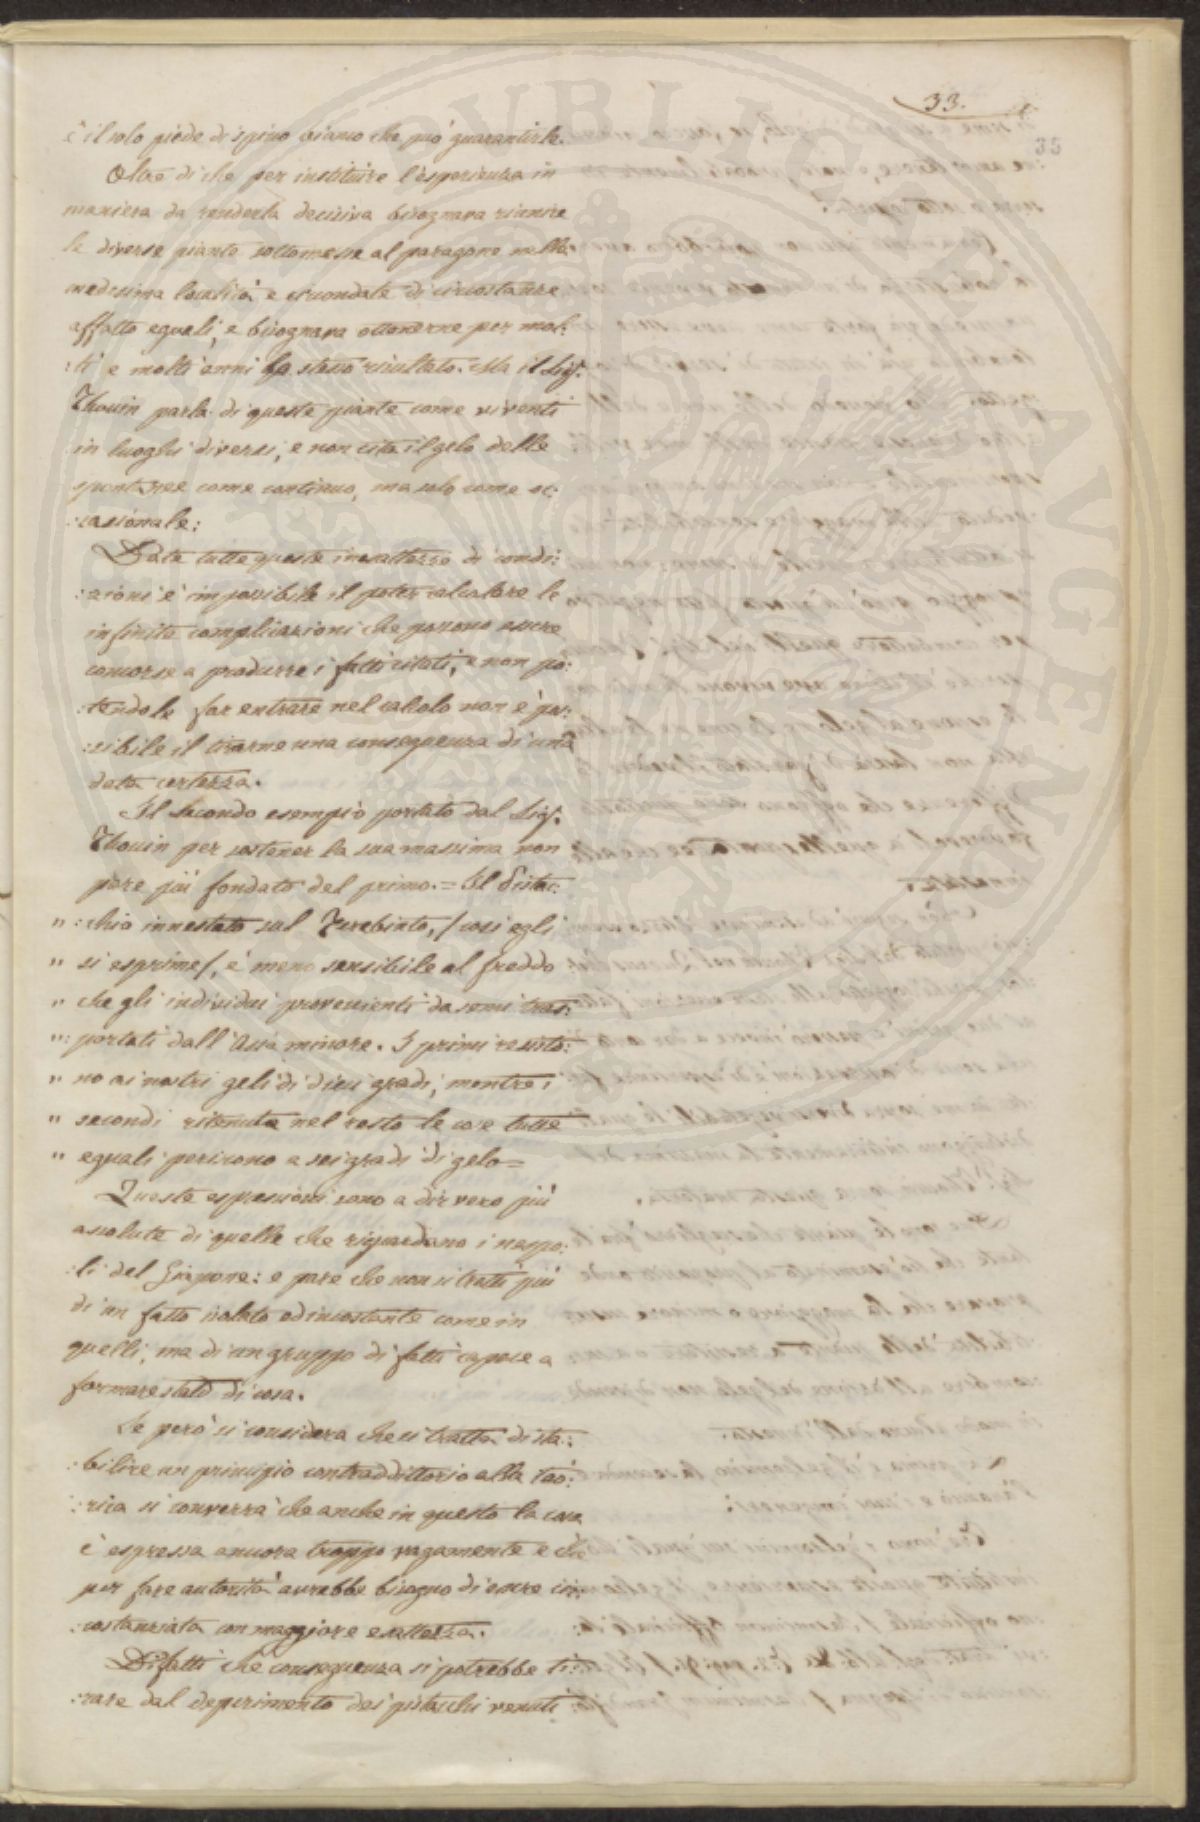 33.
35
è il solo piede di spino bianco che può guarantirle.
Oltre di che per instituire l'esperienza in
maniera da renderla decisiva bisognava riunire
le diverse piante sottomesse al paragone nella
medesima località e circondate di circostanze
affatto eguali, e bisognava ottenerne per mol:
:ti e molti anni lo stesso risultato. Ma il Sig.
Thouin parla di queste piante come viventi
in luoghi diversi, e non cita il gelo delle
spontanee come continuo, ma solo come oc:
:casionale:
Date tutte queste inesattezze di condi:
:zioni è impossibile il poter calcolare le
infinite complicazioni che possono essere
concorse a produrre i fatti citati, e non po:
:tendole far entrare nel calcolo non è pos:
:sibile il tirarne una conseguenza di una
data certezza.
Il secondo esempio portato dal Sig.
Thouin per sostener la sua massima non
pare più fondato del primo. = Il Pistac:
" :chio innestato sul Terebinto, / così egli
" si esprime /, è meno sensibile al freddo
" che gli individui provenienti da semi tras:
" :portati dall'Asia minore. I primi resisto:
" no ai nostri geli di dieci gradi, mentre i
" secondi ritenute nel resto le cose tutte
" eguali periscono a sei gradi di gelo =
Queste espressioni sono a dir vero più
assolute di quelle che riguardano i nespo:
:li del Giapone: e pare che non si tratti più
di un fatto isolato ed incostante come in
quelli, ma di un gruppo di fatti capace a
formare stato di cosa.
Se però si considera che si tratta di sta:
:bilire un principio contraddittorio alla teo:
:rica si converrà che anche in questo la cosa
è espressa ancora troppo vagamente e che
per fare autorità avrebbe bisogno di essere cir:
:costanziata con maggiore esattezza.
Difatti che conseguenza si potrebbe ti:
:rare dal deperimento dei pistacchi venuti